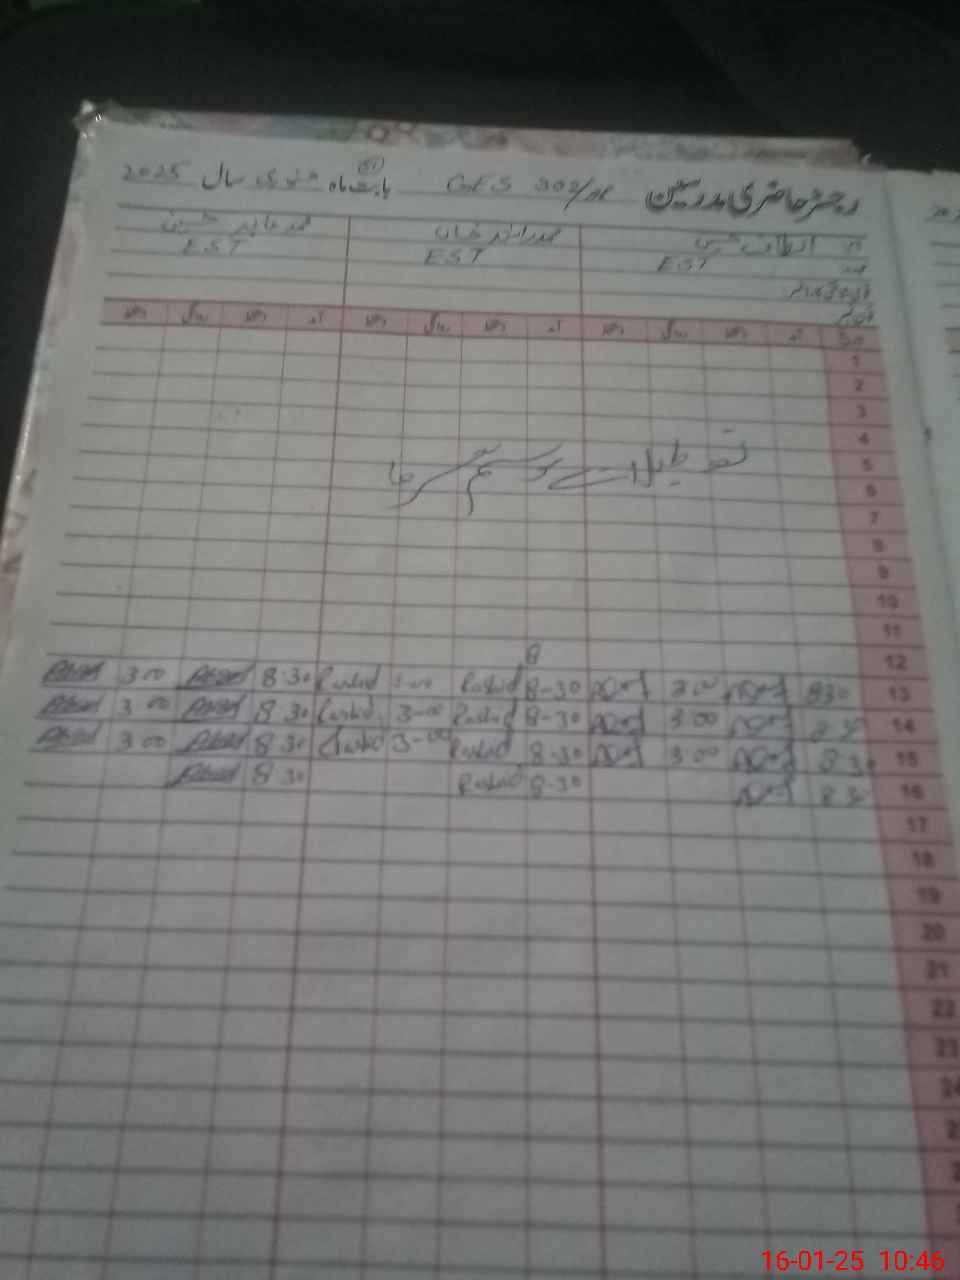 رجسٹر حاضری مدرسین GES 302/HR بابت ماہ جنوری سال 2025
الطاف حسین محمد راشد خان محمد عابد حسین
عہدہ EST EST EST
تاریخ آمد دستخط روانگی دستخط آمد دستخط روانگی دستخط آمد دستخط روانگی دستخط
1
2
3
4
تعطیلات موسم سرما
5
6
7
8
9
10
11
12 8
13 830 3 00 8-30 Rashid Rashid 8-30 Abid 3 00 Abid
14 3.00 8-30 Rashid 3-00 Rashid 8 30 Abid 3 00 Abid
15 8 30 3 00 8-30 Rashid 3-00 Rashid 8 30 Abid 3 00 Abid
16 8-30 Rashid 8 30 Abid
17
18
19
20
21
22
23
16-01-25 10:46